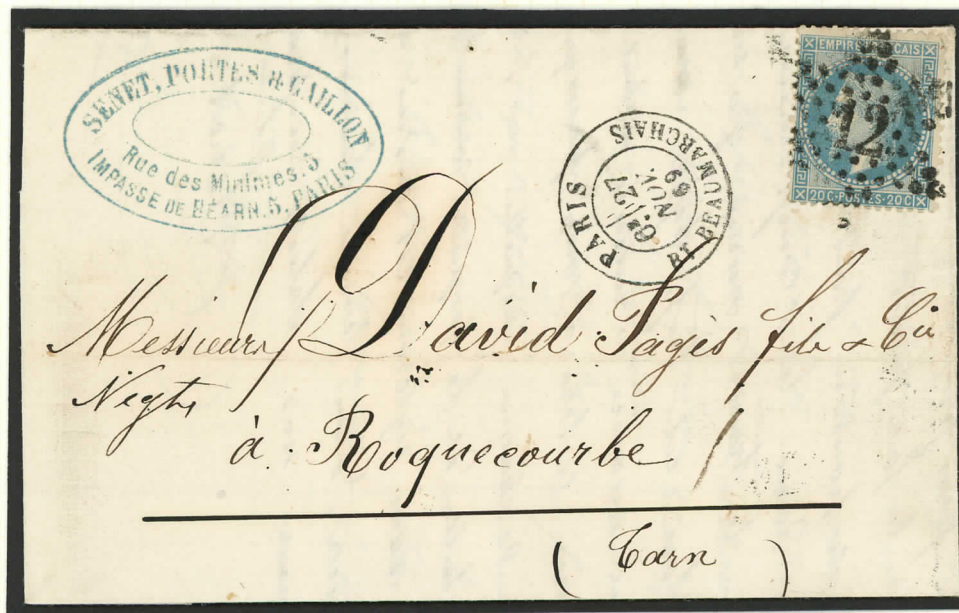 SENET, PORTES & CAILLON
Rue des Minimes. 5
IMPASSE DE BÉARN. 5. PARIS
PARIS
BT BEAUMARCHAIS
27
NOV.
69
EMPIRE FRANÇAIS
12
20C·POSTES·20C
Messieurs David Pagès fils & Cie
Negts
à Roquecourbe
(Tarn)